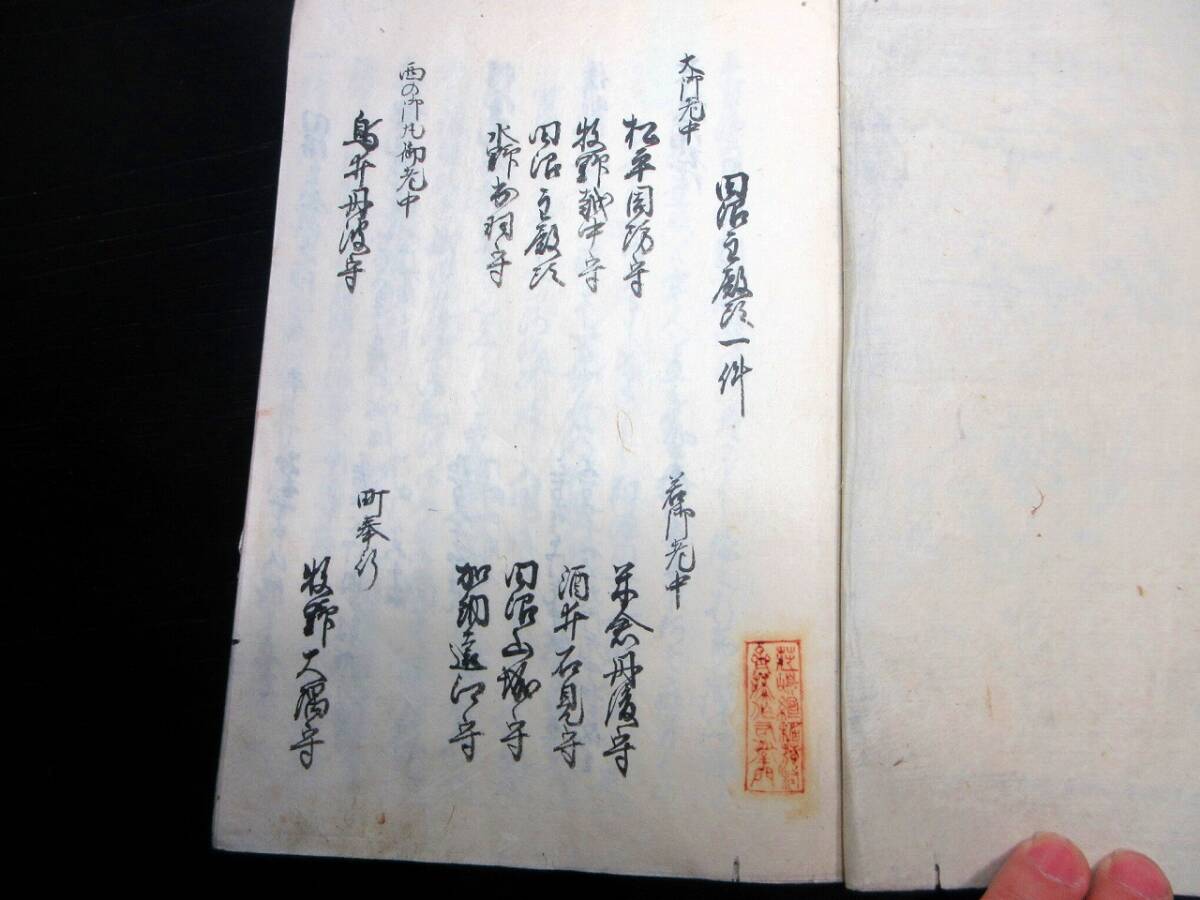 田沼主殿頭一件
大御老中
松平周防守
牧野越中守
田沼主殿頭
水野出羽守
西の御丸御老中
鳥井丹波守
若御老中
米倉丹後守
酒井石見守
田沼山城守
加納遠江守
町奉行
牧野大隅守